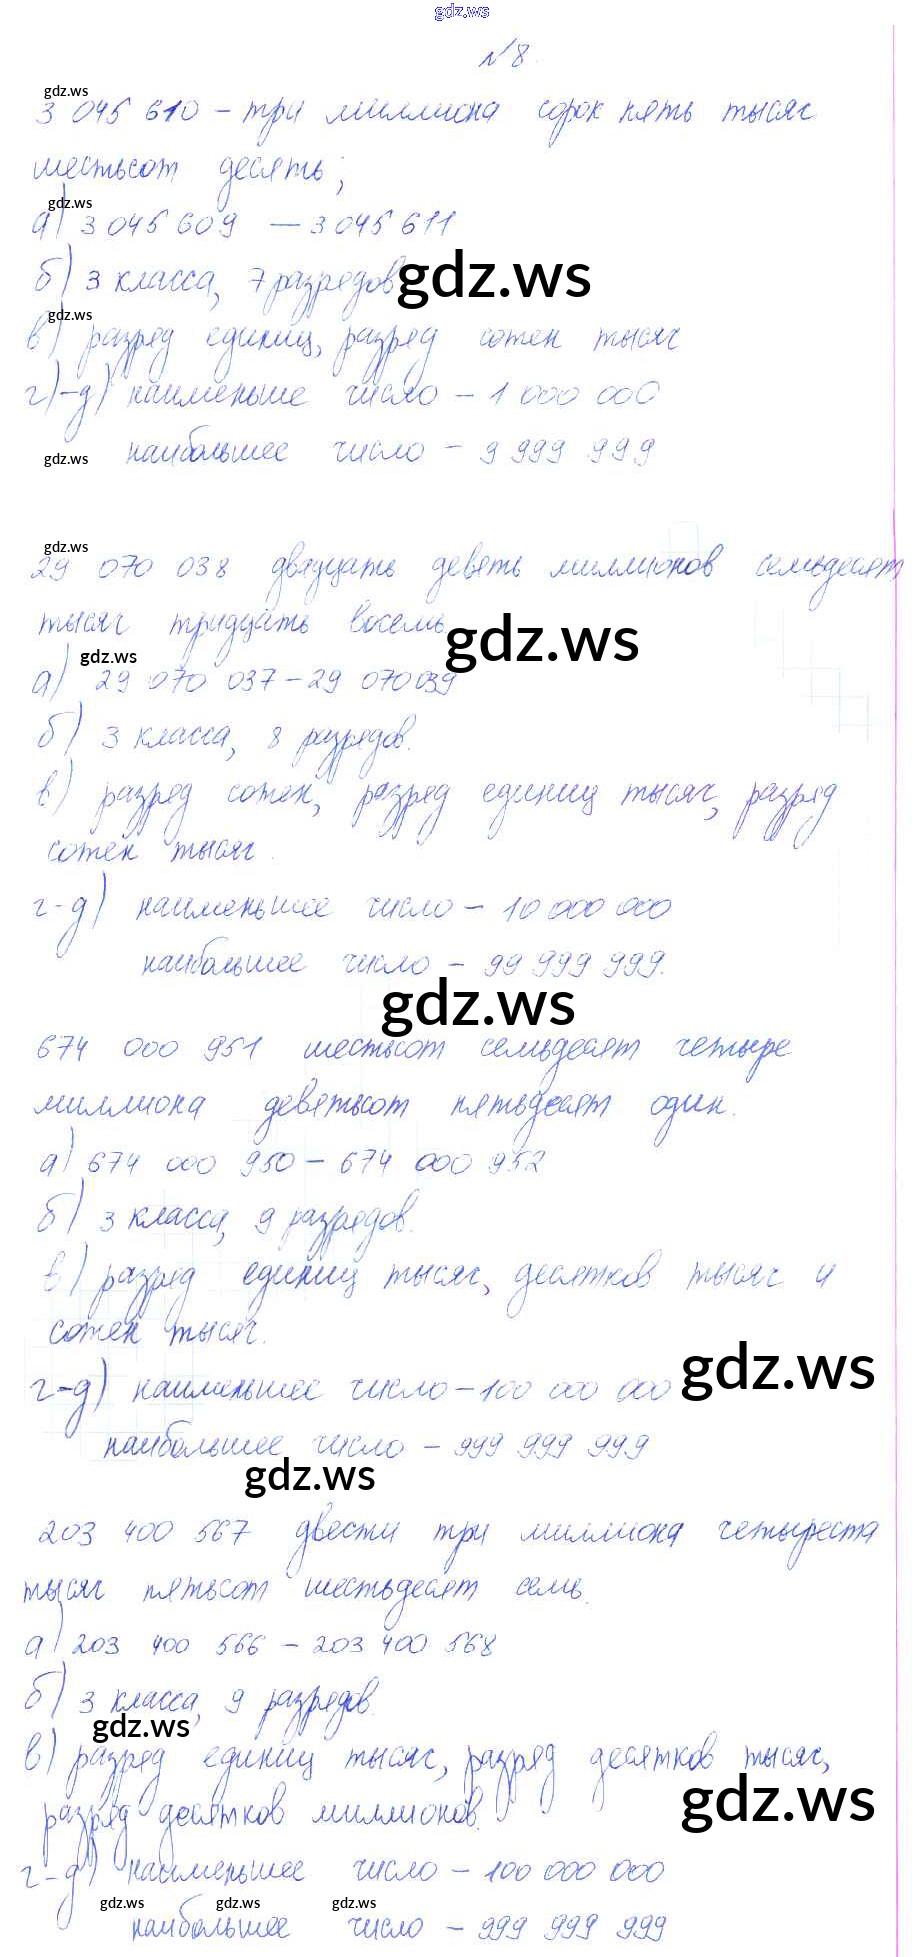 gdz.ws
№8.
gdz.ws
3 045 610 – три миллиона сорок пять тысяч
шестьсот десять;
gdz.ws
а) 3 045 609 – 3 045 611
б) 3 класса, 7 разредов gdz.ws
gdz.ws
в) разряд единиц, разряд сотен тысяч
г)-д) наименьше число – 1 000 000
gdz.ws наибольшее число – 9 999 999
gdz.ws
29 070 038 двадцать девять миллионов семьдесят
тысяч тридцать восемь. gdz.ws
gdz.ws
а) 29 070 037 – 29 070 039
б) 3 класса, 8 разредов.
в) разряд сотен, разряд единиц тысяч, разряд
сотен тысяч.
г-д) наименьшее число – 10 000 000
наибольшее число – 99 999 999.
gdz.ws
674 000 951 шестьсот семьдесят четыре
миллиона девятьсот пятьдесят один.
а) 674 000 950 – 674 000 952
б) 3 класса, 9 разредов.
в) разряд единиц тысяч, десятков тысяч и
сотен тысяч.
г-д) наименьшее число – 100 000 000 gdz.ws
наибольшее число – 999 999 999
gdz.ws
203 400 567 двести три миллиона четыреста
тысяч пятьсот шестьдесят семь.
а) 203 400 566 – 203 400 568
б) 3 класса, 9 разрядов.
gdz.ws
в) разряд единиц тысяч, разряд десятков тысяч,
разряд десятков миллионов. gdz.ws
г-д) наименьшее число – 100 000 000
gdz.ws gdz.ws gdz.ws
наибольшее число – 999 999 999